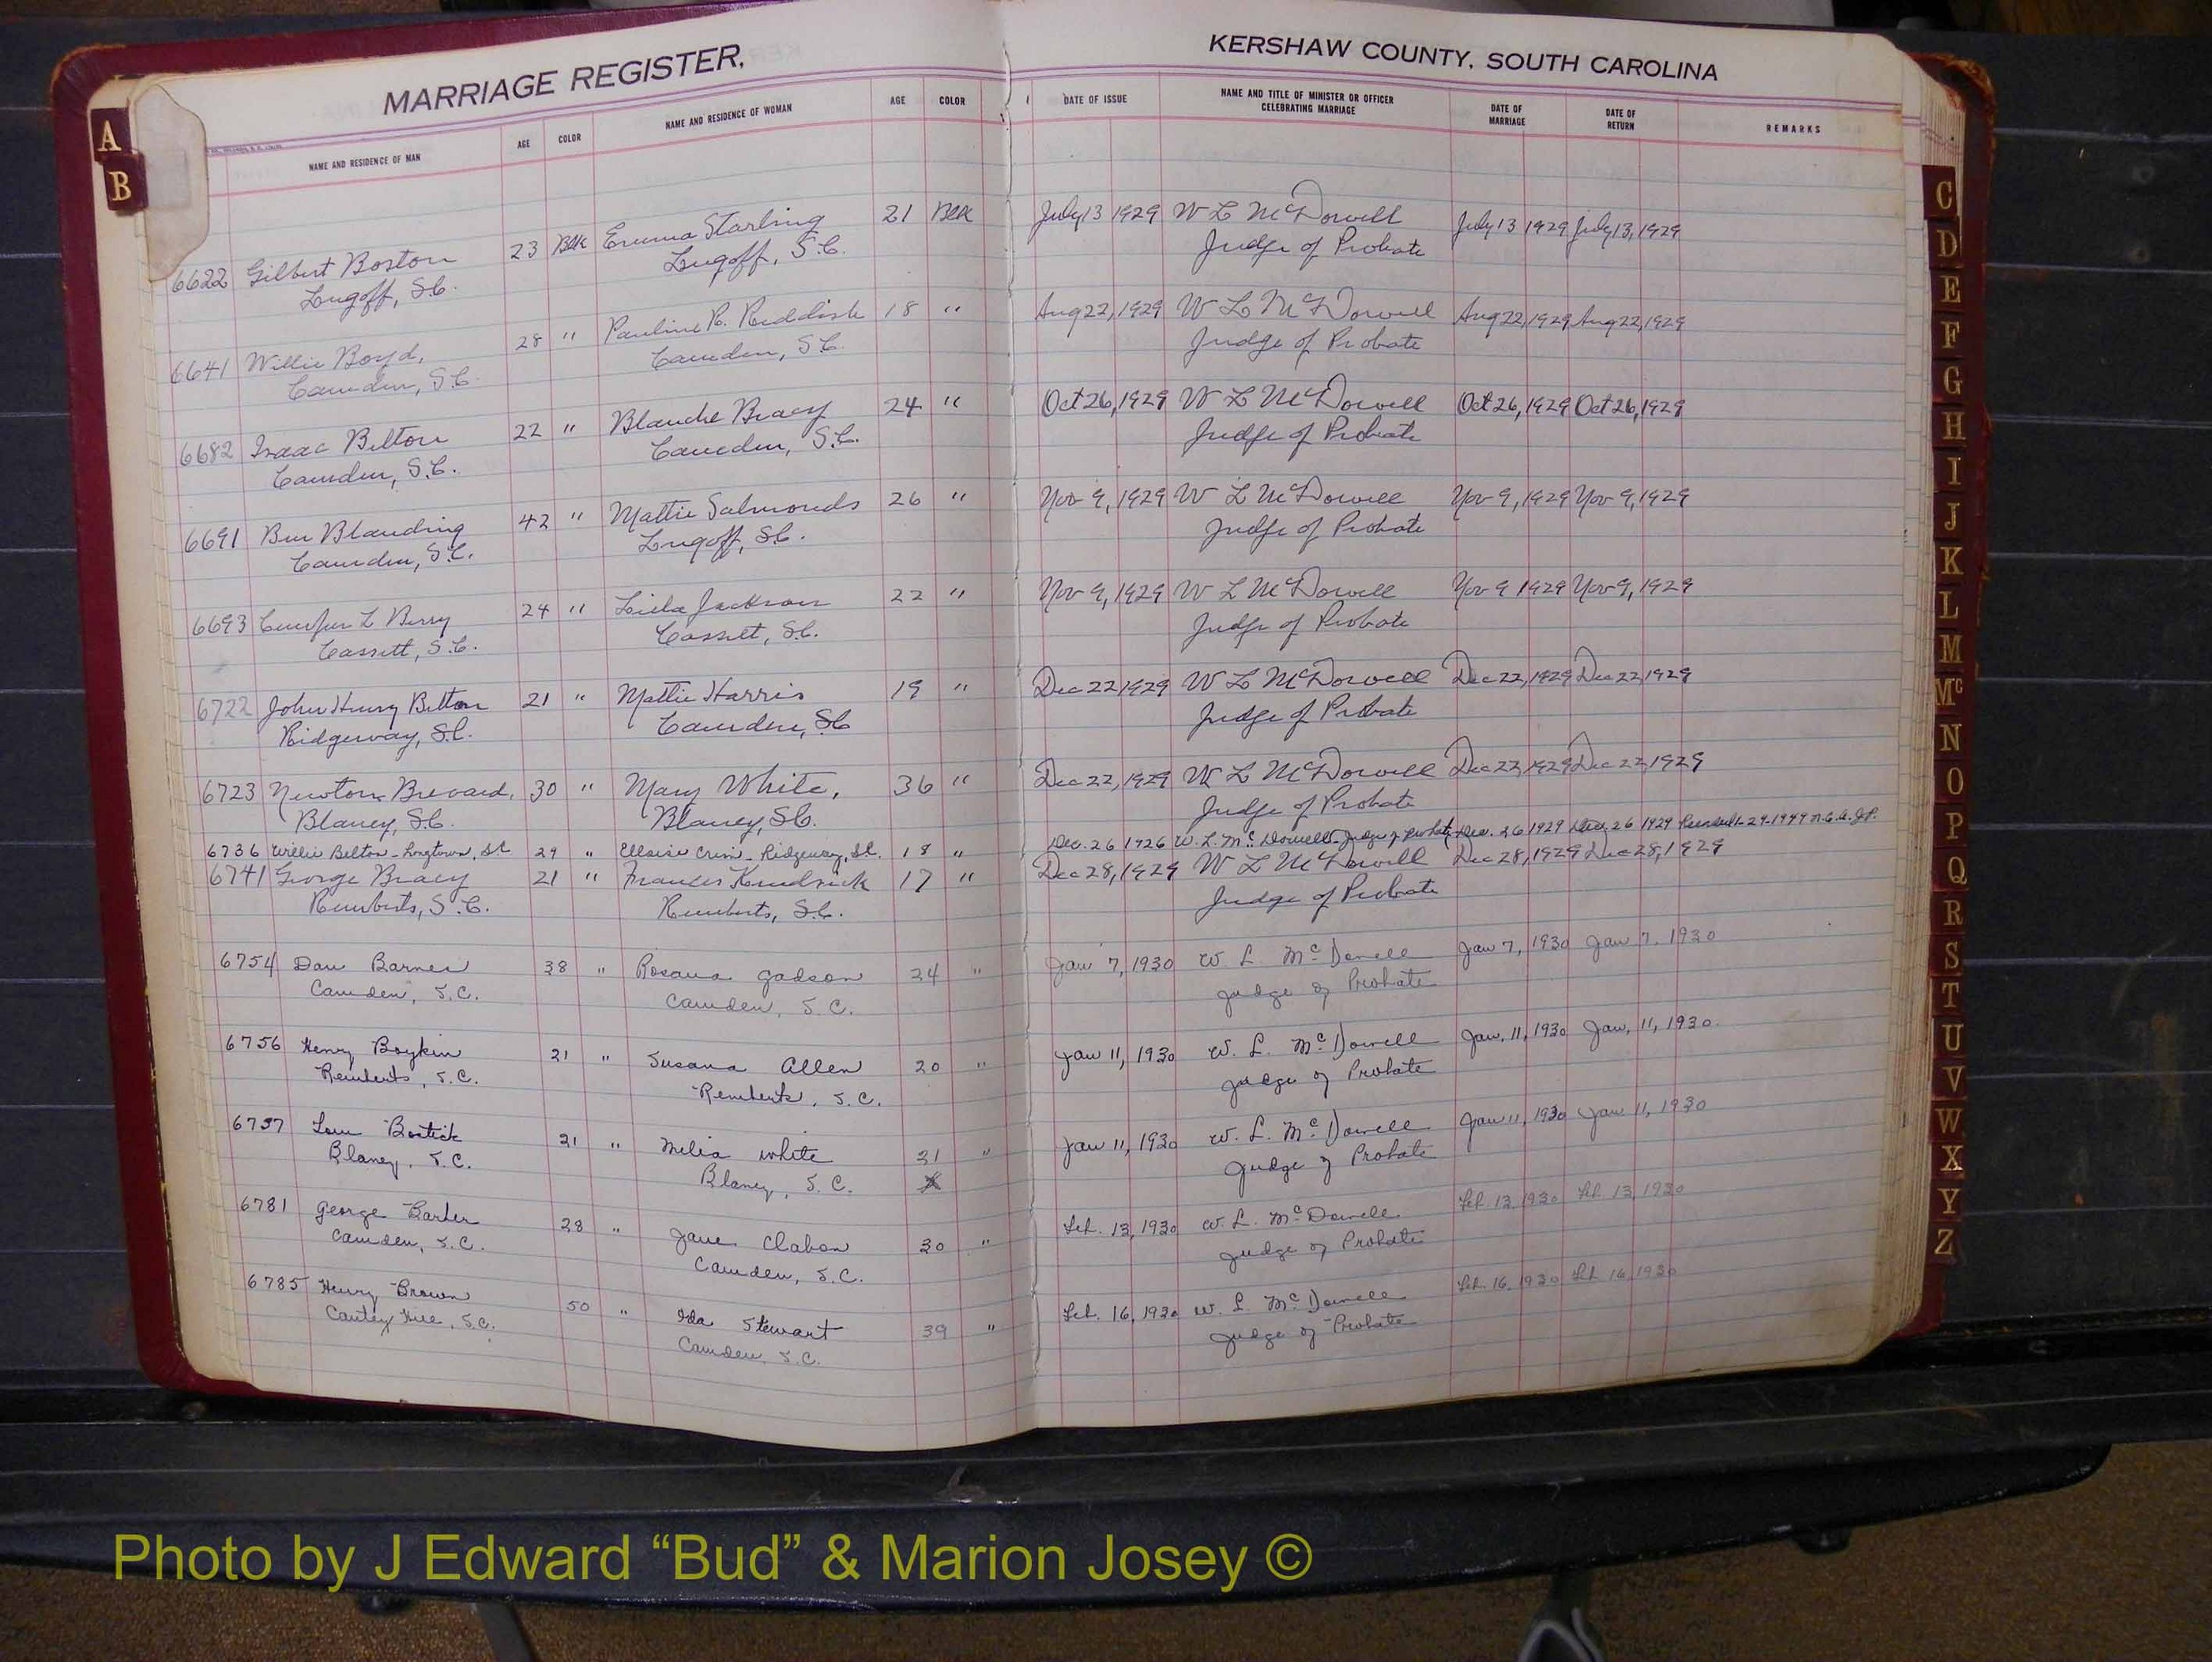 MARRIAGE REGISTER,
KERSHAW COUNTY, SOUTH CAROLINA
NAME AND RESIDENCE OF MAN AGE COLOR NAME AND RESIDENCE OF WOMAN AGE COLOR DATE OF ISSUE NAME AND TITLE OF MINISTER OR OFFICER CELEBRATING MARRIAGE DATE OF MARRIAGE DATE OF RETURN REMARKS
6622 Gilbert Boston 23 Blk Emma Starling 21 Blk July 13 1929 W L McDowell July 13 1929 July 13, 1929
Lugoff, S.C. Lugoff, S.C. Judge of Probate
6641 Willie Boyd, 28 " Pauline R. Reddish 18 " Aug 22, 1929 W L McDowell Aug 22, 1929 Aug 22, 1929
Camden, S.C. Camden, S.C. Judge of Probate
6682 Isaac Belton 22 " Blanche Bracy 24 " Oct 26, 1929 W L McDowell Oct 26, 1929 Oct 26, 1929
Camden, S.C. Camden, S.C. Judge of Probate
6691 Ben Blanding 42 " Mattie Salmonds 26 " Nov 9, 1929 W L McDowell Nov 9, 1929 Nov 9, 1929
Camden, S.C. Lugoff, S.C. Judge of Probate
6693 L Berry 24 " Jackson 22 " Nov 9, 1929 W L McDowell Nov 9 1929 Nov 9, 1929
Cassett, S.C. Cassett, S.C. Judge of Probate
6722 John Henry Belton 21 " Mattie Harris 19 " Dec 22 1929 W L McDowell Dec 22, 1929 Dec 22, 1929
Ridgeway, S.C. Camden, S.C Judge of Probate
6723 Newton Brevard, 30 " Mary White, 36 " Dec 22, 1929 W L McDowell Dec 22, 1929 Dec 22, 1929
Blaney, S.C. Blaney, S.C. Judge of Probate
6736 Willie Belton - Longtown, S.C 29 " Elloise Crim - Ridgeway, S.C. 18 " Dec. 26 1926 W. L. McDowell Judge of Probate Dec. 26 1929 Dec. 26 1929
6741 George Bracy 21 " Frances Kendrick 17 " Dec 28, 1929 W L McDowell Dec 28, 1929 Dec 28, 1929
Remberts, S.C. Remberts, S.C. Judge of Probate
6754 Dan Barnes 38 " Rosana Gadson 24 " Jan 7, 1930 W. L. McDowell Jan 7, 1930 Jan 7. 1930
Camden, S.C. Camden, S.C. Judge of Probate
6756 Henry Boykin 21 " Susana Allen 20 " Jan 11, 1930 W. L. McDowell Jan, 11, 1930 Jan, 11, 1930.
Remberts, S.C. Remberts, S.C. Judge of Probate
6757 Bostick 21 " Melia White 21 " Jan 11, 1930 W. L. McDowell Jan 11, 1930 Jan 11, 1930
Blaney, S.C. Blaney, S.C. Judge of Probate
6781 George Barber 28 " Jane Clabon 30 " Feb. 13, 1930 W. L. McDowell Feb. 13, 1930 Feb. 13, 1930
Camden, S.C. Camden, S.C. Judge of Probate
6785 Henry Brown 50 " Ida Stewart 39 " Feb. 16, 1930 W. L. McDowell Feb. 16, 1930 Feb 16, 1930
Cantey Hill, S.C. Camden, S.C. Judge of Probate
A
B
C
D
E
F
G
H
I
J
K
L
M
Mc
N
O
P
Q
R
S
T
U
V
W
X
Y
Z
Photo by J Edward “Bud” & Marion Josey ©